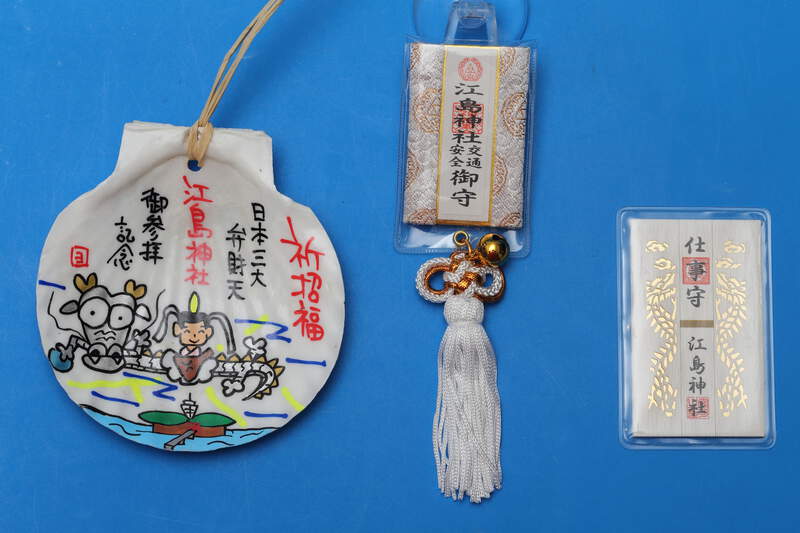 祈招福
日本三大
弁財天
江島神社
御参拝
記念
江島神社
交通
安全
御守
仕事守
江島神社